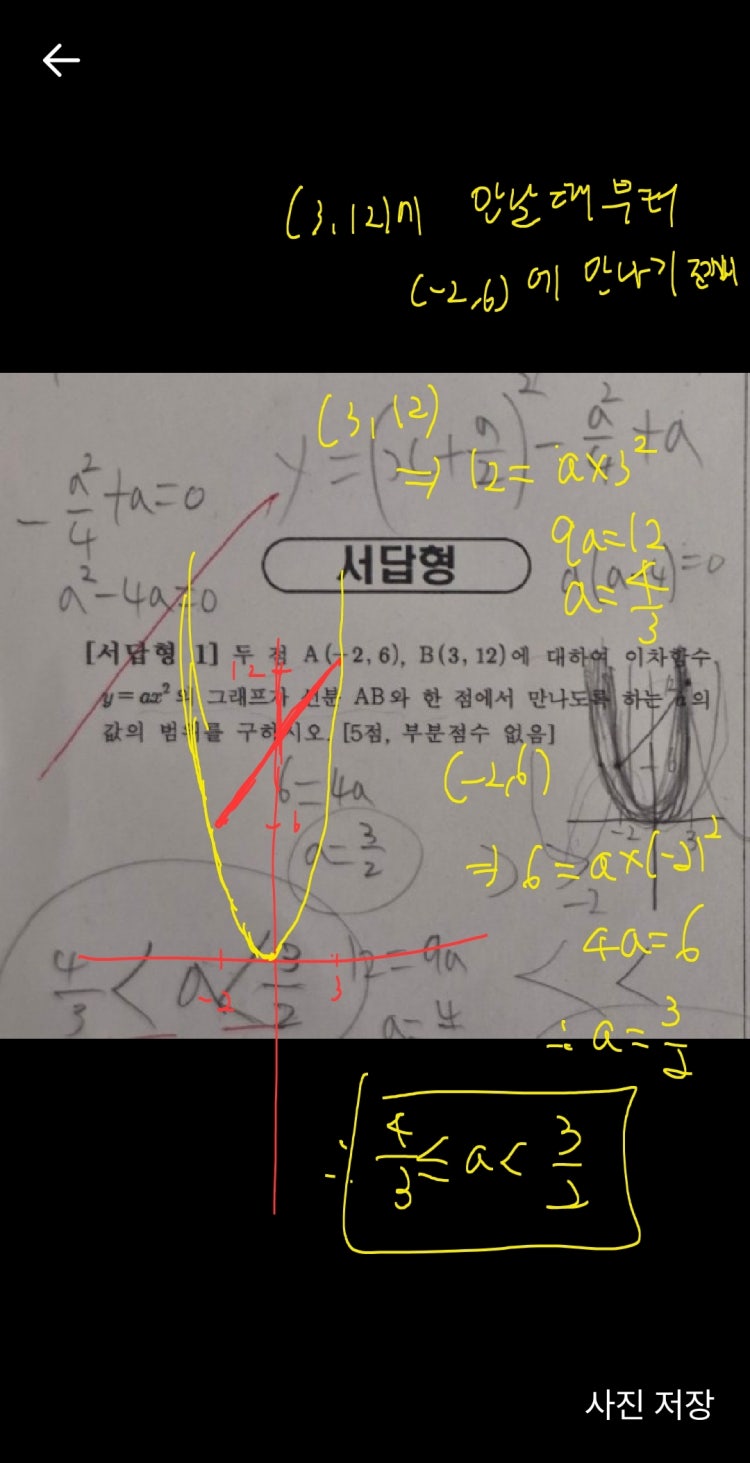 (3, 12)에 만날때부터
(-2, 6)에 만나기 전까지
(3, 12)
⇒ 12 = a×3²
9a=12
a=4/3
y = (x + a/2)² - a²/4 + a
- a²/4 + a = 0
a² - 4a = 0
a(a-4)=0
서답형
[서답형 1] 두 점 A(-2, 6), B(3, 12)에 대하여 이차함수
y=ax²의 그래프가 선분 AB와 한 점에서 만나도록 하는 a의
값의 범위를 구하시오. [5점, 부분점수 없음]
12
6
-2
3
6=4a
a=3/2
(-2, 6)
⇒ 6 = a×(-2)²
4a=6
∴ a=3/2
4/3 < a < 3/2
12=9a
a=4
-2
3
∴ 4/3 ≤ a < 3/2
사진 저장